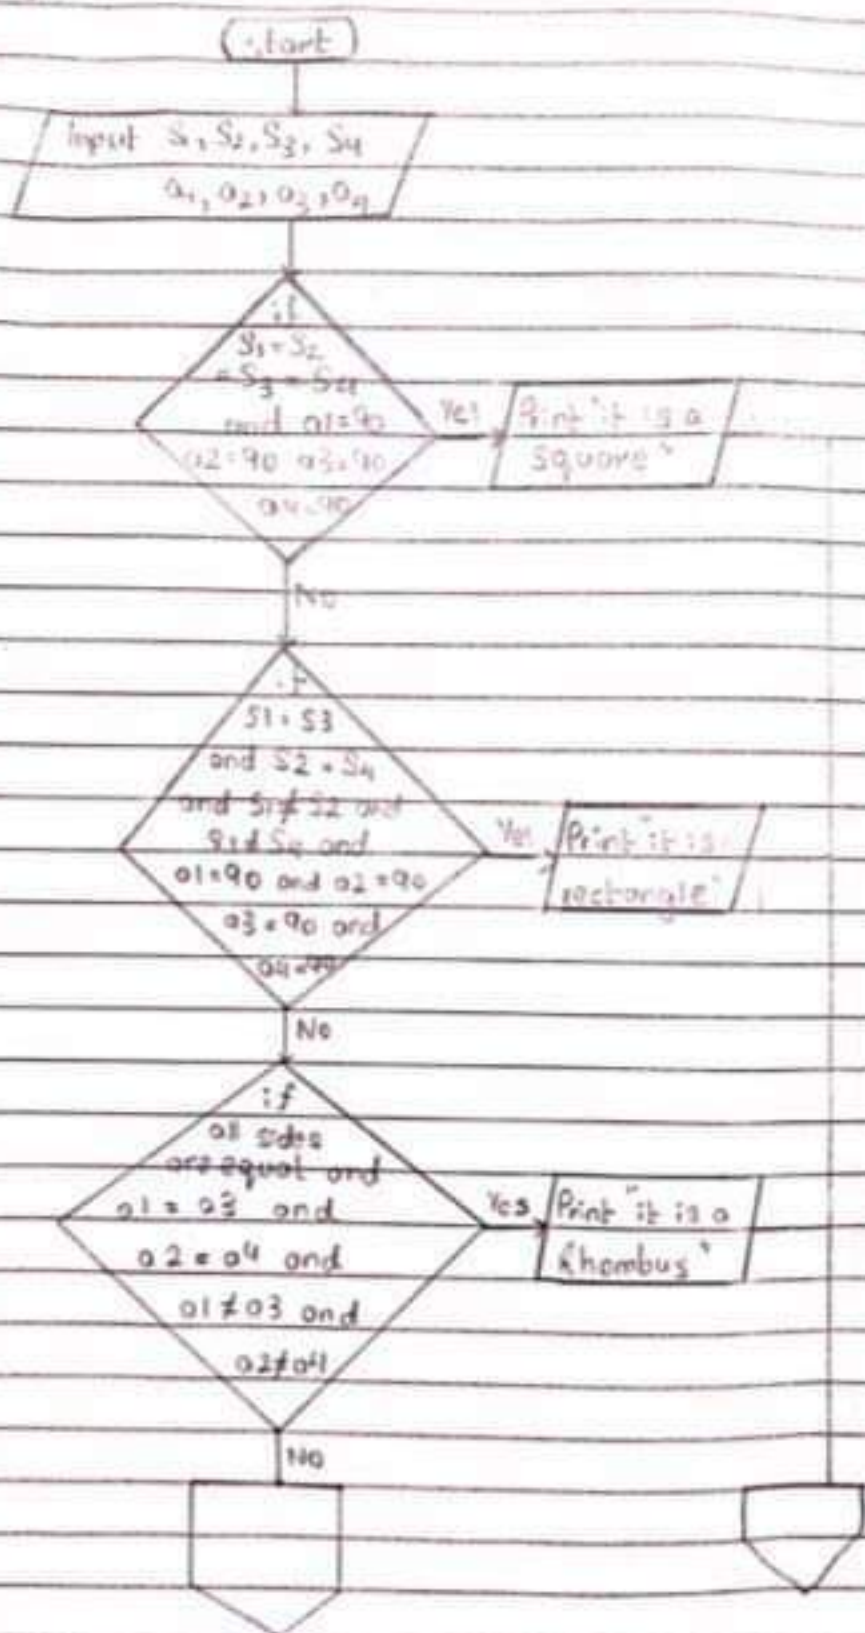 start
input S1, S2, S3, S4
a1, a2, a3, a4
if
S1 = S2
= S3 = S4
and a1=90
a2=90 a3=90
a4=90
Yes
Print "it is a
square"
No
if
S1 = S3
and S2 = S4
and S1≠S2 and
S1≠S4 and
a1=90 and a2=90
a3=90 and
a4=90
Yes
Print "it is
rectangle"
No
if
all sides
are equal and
a1 = a3 and
a2 = a4 and
a1≠a3 and
a2≠a4
Yes
Print "it is a
Rhombus"
No